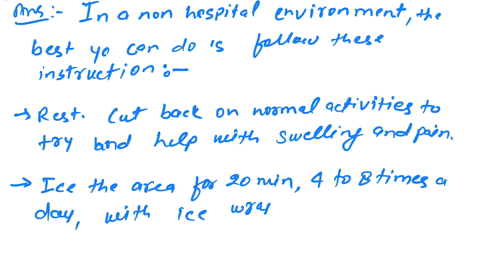 Ans:- In a non hospital environment, the
best yo can do is follow these
instruction:-
→ Rest. Cut back on normal activities to
try and help with swelling and pain.
→ Ice the area for 20 min, 4 to 8 times a
day, with ice wra